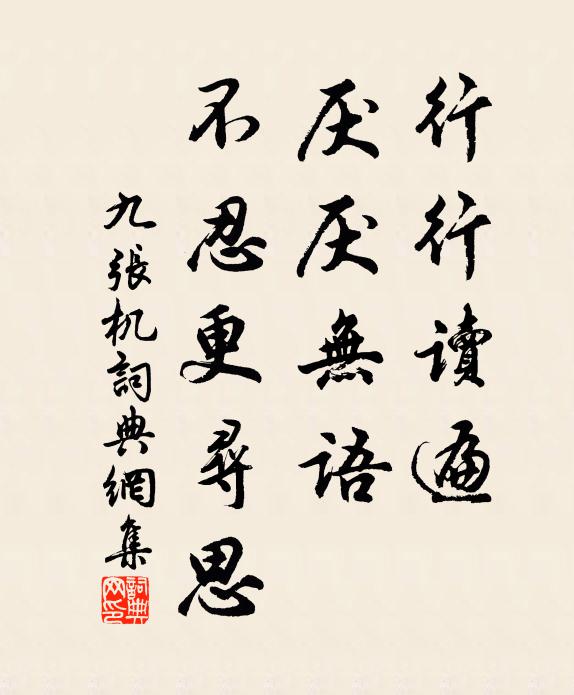 行行讀遍
厌厌無語
不忍更尋思
九張机詞典網集
詞典网印